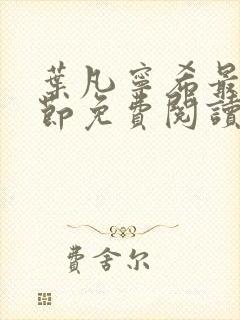 葉凡寧希最
節免費閱讀
費舍尔